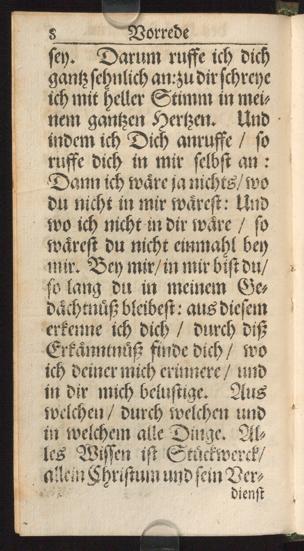 8 Vorrede
sey. Darum ruffe ich dich
gantz sehnlich an: zu dir schreye
ich mit heller Stimm in mei-
nem gantzen Hertzen. Und
indem ich Dich anruffe / so
ruffe dich in mir selbst an :
Dann ich wäre ja nichts / wo
du nicht in mir wärest: Und
wo ich nicht in dir wäre / so
wärest du nicht einmahl bey
mir. Bey mir / in mir bist du /
so lang du in meinem Ge-
dächtnüß bleibest: aus diesem
erkenne ich dich / durch diß
Erkänntnüß finde dich / wo
ich deiner mich erinnere / und
in dir mich belustige. Aus
welchen / durch welchen und
in welchem alle Dinge. Al-
les Wissen ist Stückwerck /
allein Christum und sein Ver-
dienst